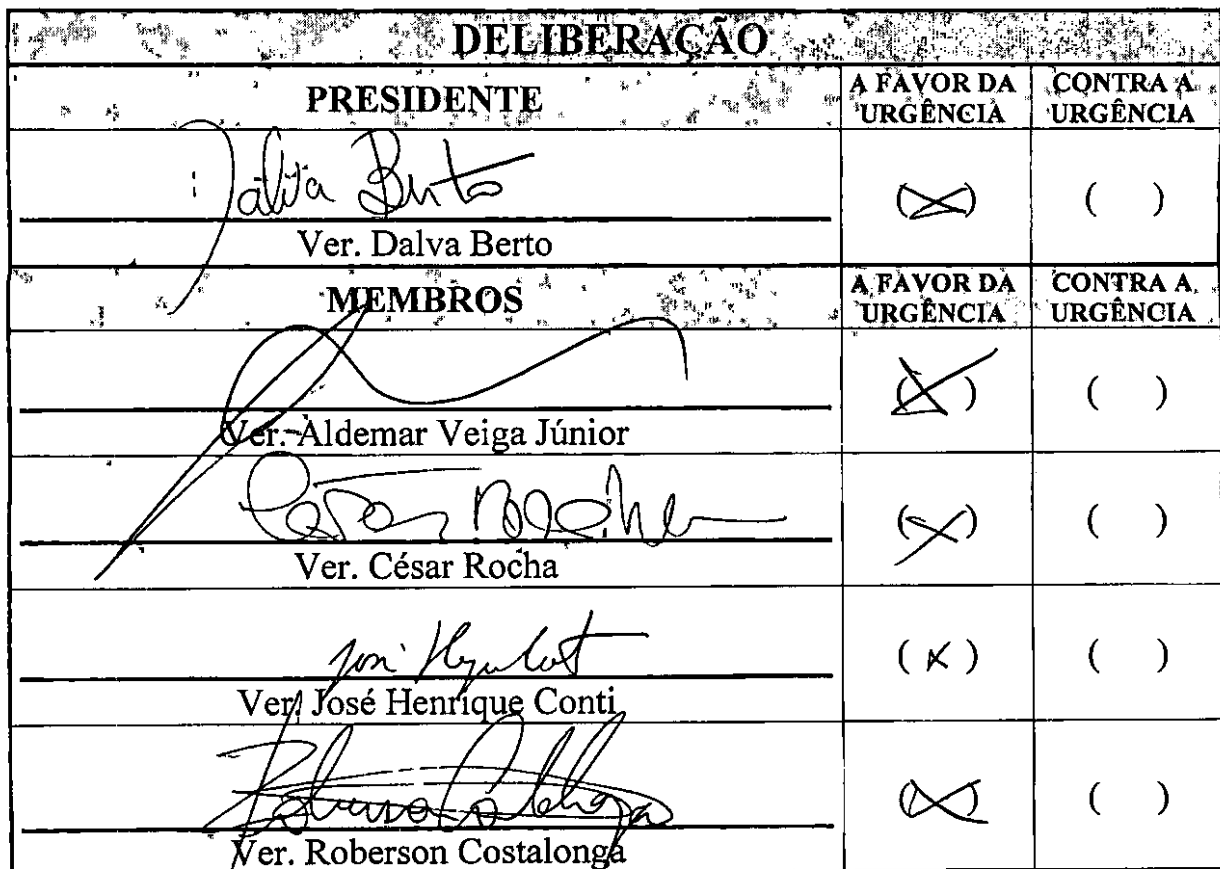 DELIBERAÇÃO
PRESIDENTE
A FAVOR DA URGÊNCIA
CONTRA A URGÊNCIA
Dalva Berto
(X)
( )
Ver. Dalva Berto
MEMBROS
A FAVOR DA URGÊNCIA
CONTRA A URGÊNCIA
(X)
( )
Ver. Aldemar Veiga Júnior
(X)
( )
Ver. César Rocha
(X)
( )
Ver. José Henrique Conti
(X)
( )
Ver. Roberson Costalonga